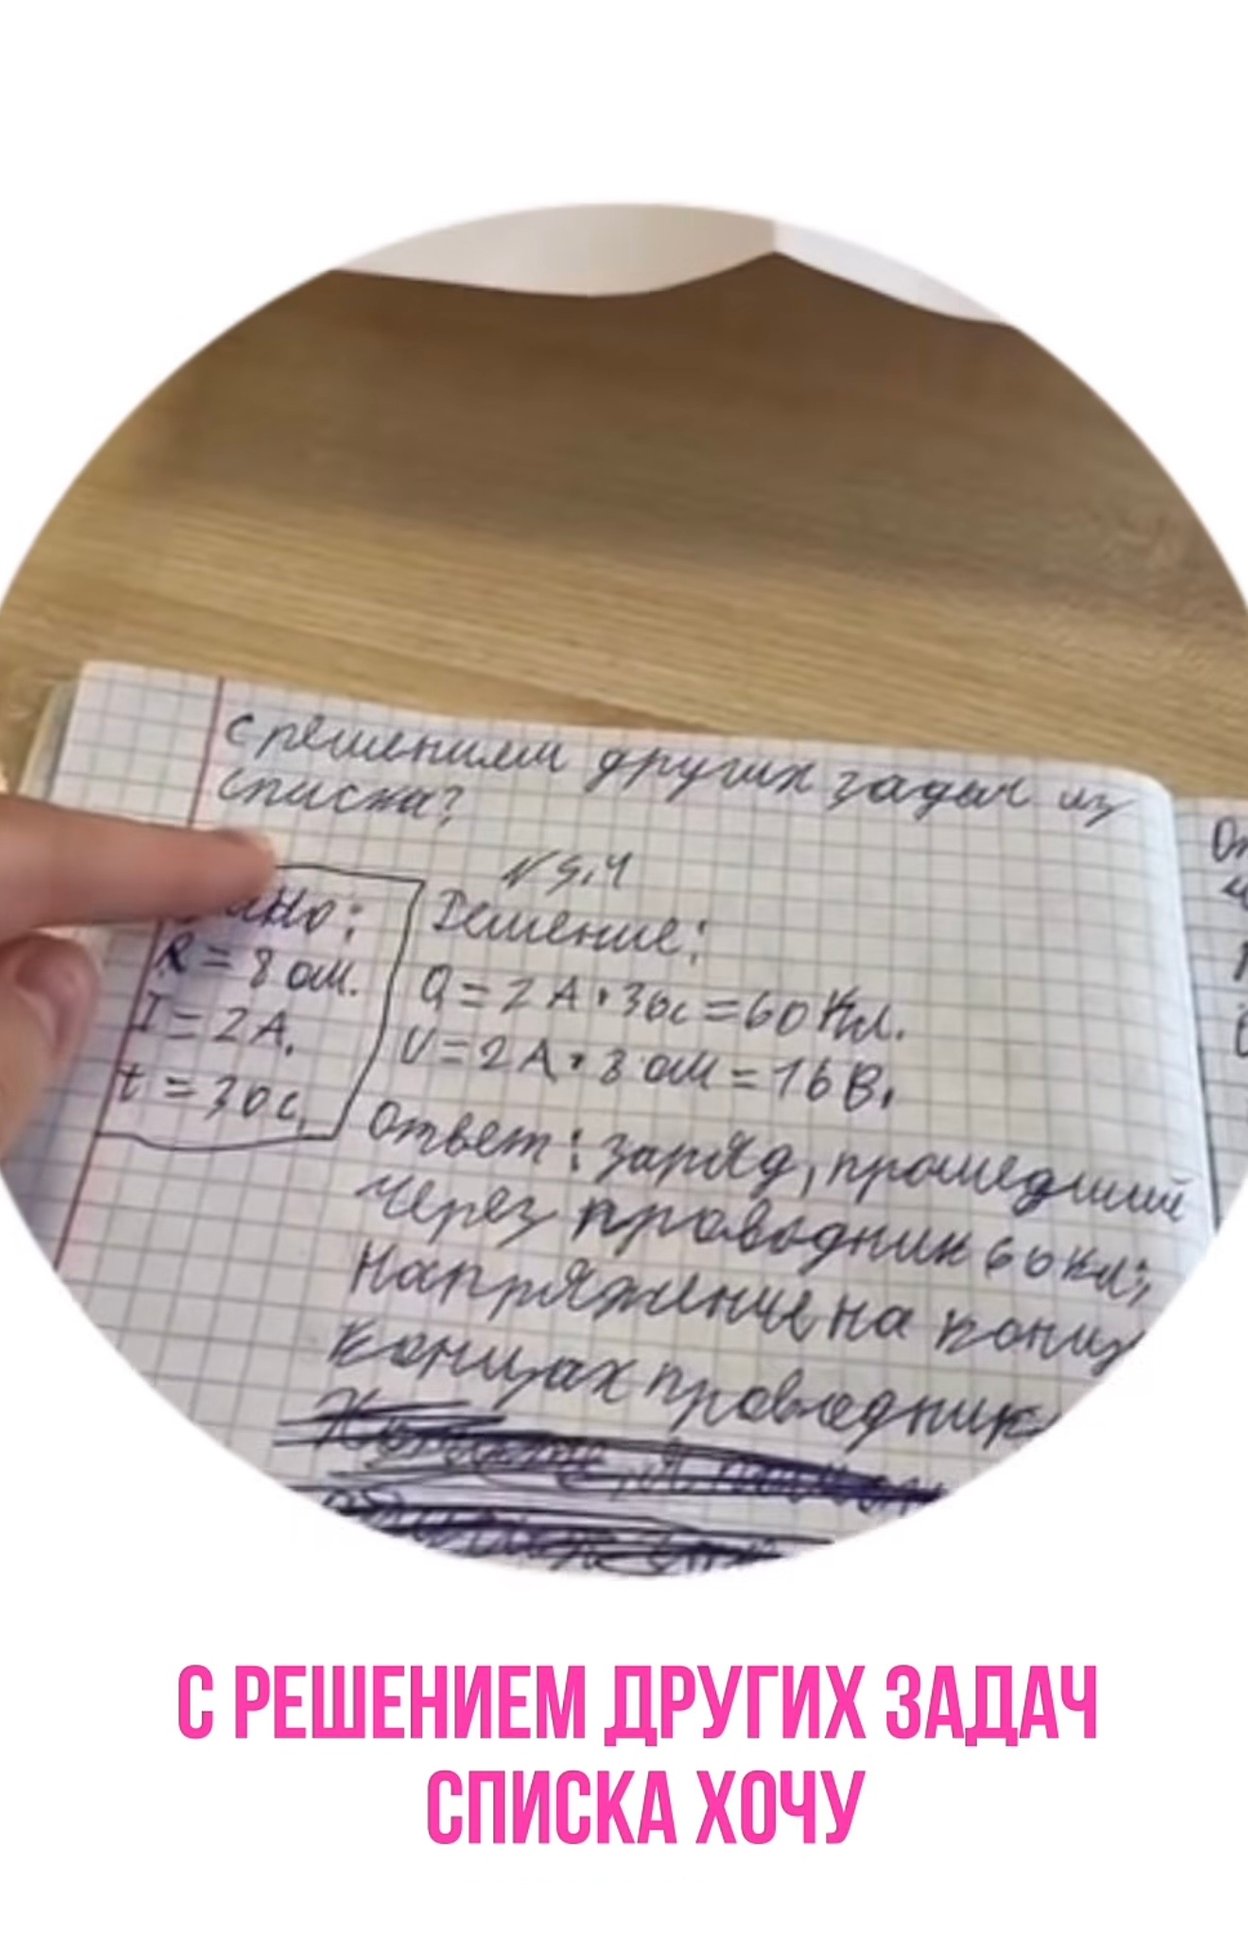 с решением других задач из
списка?
№ 5.4
Дано:
R = 8 ом.
I = 2 А.
t = 30с.
Решение:
Q = 2 А · 30с = 60 Кл.
U = 2 А · 8 ом = 16 В.
Ответ: заряд, прошедший
через проводник 60 Кл;
Напряжение на
концах проводника
С РЕШЕНИЕМ ДРУГИХ ЗАДАЧ
СПИСКА ХОЧУ